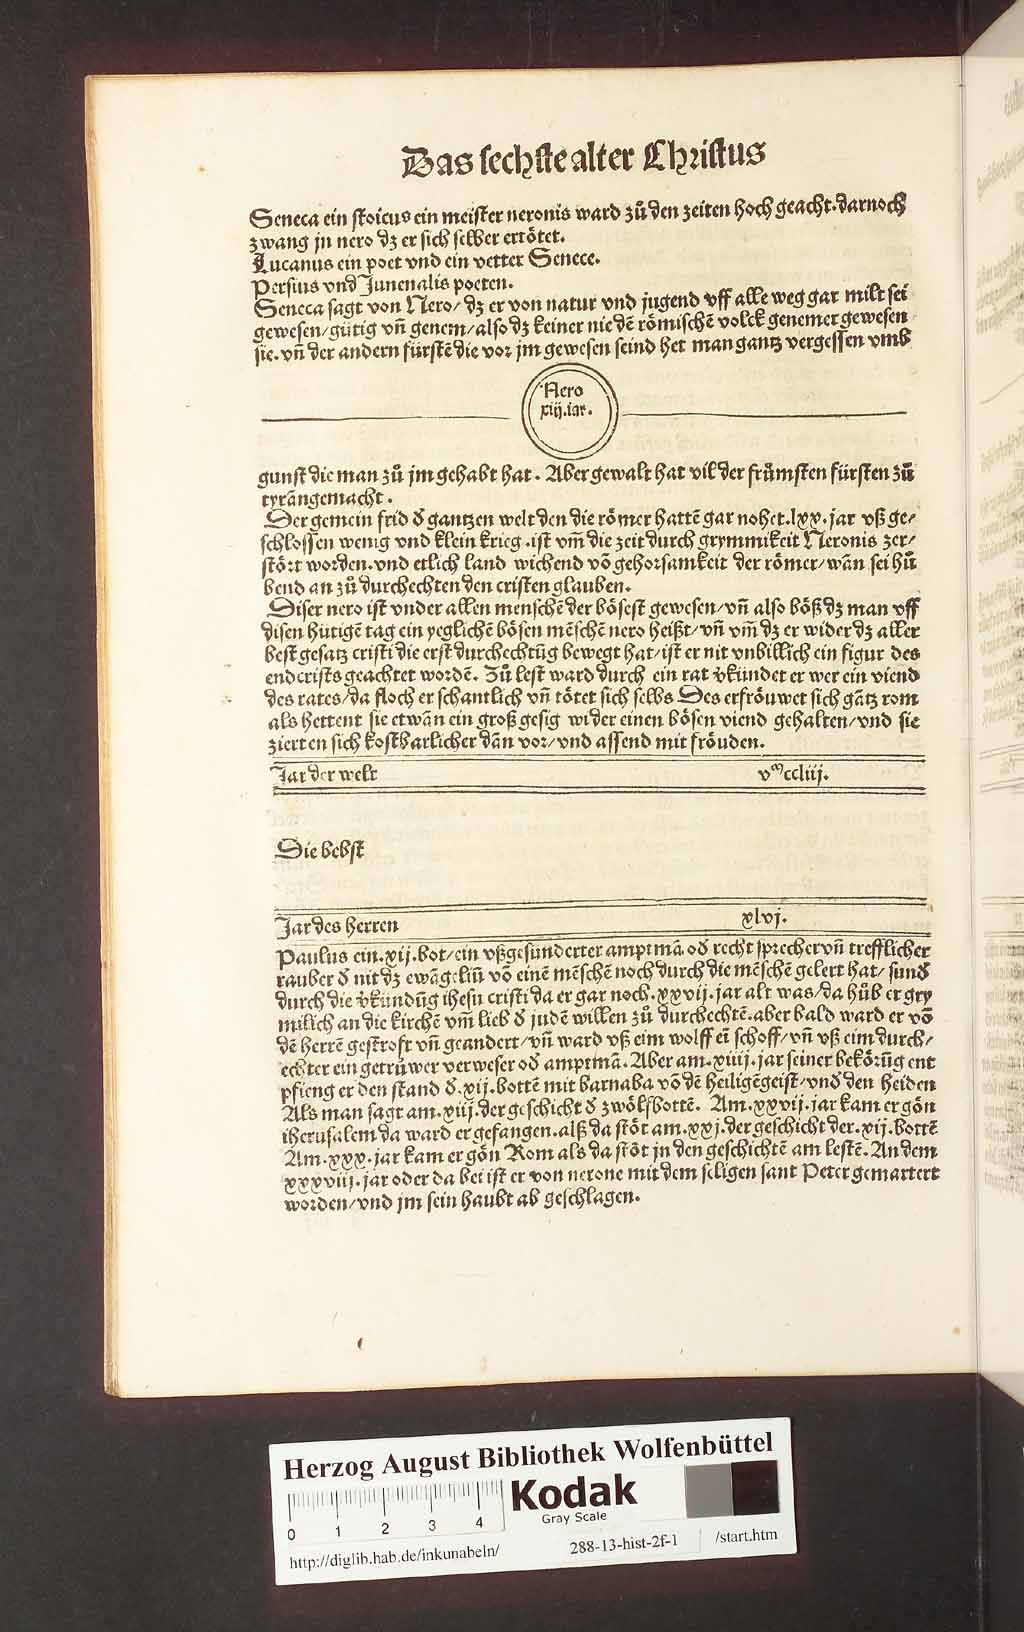 Das sechste alter Christus
Seneca ein stoicus ein meister neronis ward zů den zeiten hoch geacht. darnoch
zwang jn nero dz er sich selber ertötet.
Lucanus ein poet vnd ein vetter Senece.
Persius vnd Juuenalis poeten.
Seneca sagt von Nero/ dz er von natur vnd jugend vff alle weg gar milt sei
gewesen/ gütig vñ genem/ also dz keiner nie dē römischē volck genemer gewesen
sie. vñ der andern fürstē die vor jm gewesen seind het man gantz vergessen vmb
Nero
xiij. iar.
gunst die man zů jm gehabt hat. Aber gewalt hat vil der frůmsten fürsten zů
tyrāngemacht.
Der gemein frid d̓ gantzen welt den die römer hattē gar nohet. lxx. jar vß ge/
schlossen wenig vnd klein krieg. ist vm̄ die zeit durch grymmikeit Neronis zer/
stört worden. vnd etlich land wichend vō gehorsamkeit der römer/ wān sei hů
bend an zů durchechten den cristen glauben.
Diser nero ist vnder allen menschē der bösest gewesen/ vñ also böß dz man vff
disen hütigē tag ein yeglichē bösen mēschē nero heißt/ vñ vm̄ dz er wider dz aller
best gesatz cristi die erst durchechtūg bewegt hat/ ist er nit vnbillich ein figur des
endcrists geachtet wordē. Zů lest ward durch ein rat v̓kündet er wer ein viend
des rates/ da floch er schantlich vñ tötet sich selbs Des erfröuwet sich gātz rom
als hettent sie etwān ein groß gesig wider einen bösen viend gehalten/ vnd sie
zierten sich kostbarlicher dān vor/ vnd assend mit fröuden.
Jar der welt vᵐccliij.
Die bebst
Jar des herren xlvj.
Paulus ein. xij. bot/ ein vßgesunderter amptmā. od̓ recht sprecher vñ trefflicher
rauber d̓ nit dz ewāgeliū vō einē mēschē noch durch die mēschē gelert hat/ sund̓
durch die v̓kündūg ihesu cristi da er gar noch. xxvij. jar alt was/ da hůb er gry
milich an die kirchē vm̄ lieb d̓ judē willen zů durchechtē. aber bald ward er vō
dē herrē gestroft vñ geandert/ vñ ward vß eim wolff eī schoff/ vñ vß eim durch/
echter ein getrüwer verweser od̓ amptmā. Aber am. xiiij. jar seiner bekörūg ent
pfieng er den stand d̓. xij. bottē mit barnaba vō dē heiligē geist/ vnd̓ den heiden
Als man sagt am. xiij. der geschicht d̓ zwölfbottē. Am. xxvij. jar kam er gön
iherusalem da ward er gefangen. alß da stöt am. xxj. der geschicht der. xij. bottē
Am. xxx. jar kam er gön Rom als da stöt jn den geschichtē am lestē. An dem
xxxviij. jar oder da bei ist er von nerone mit dem seligen sant Peter gemartert
worden/ vnd jm sein haubt ab geschlagen.
Herzog August Bibliothek Wolfenbüttel
Kodak
Gray Scale
0 1 2 3 4
http://diglib.hab.de/inkunabeln/ 288-13-hist-2f-1 /start.htm